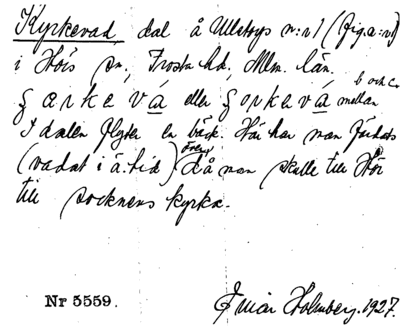 Kyrkevad dal å Ullstorps n:r 1 (fig. a:nr 1)
i Hörs sn, Frosta hd, Mlm. län.
ʒ a r k e v á eller ʒ o r k e v á mellan b och c.
I dalen flyter en bäck. Här har man färdats
(vadat i ä. tid) över då man skulle till Hör
till socknens kyrka.
Nr 5559.
Ingvar Holmberg. 1927.